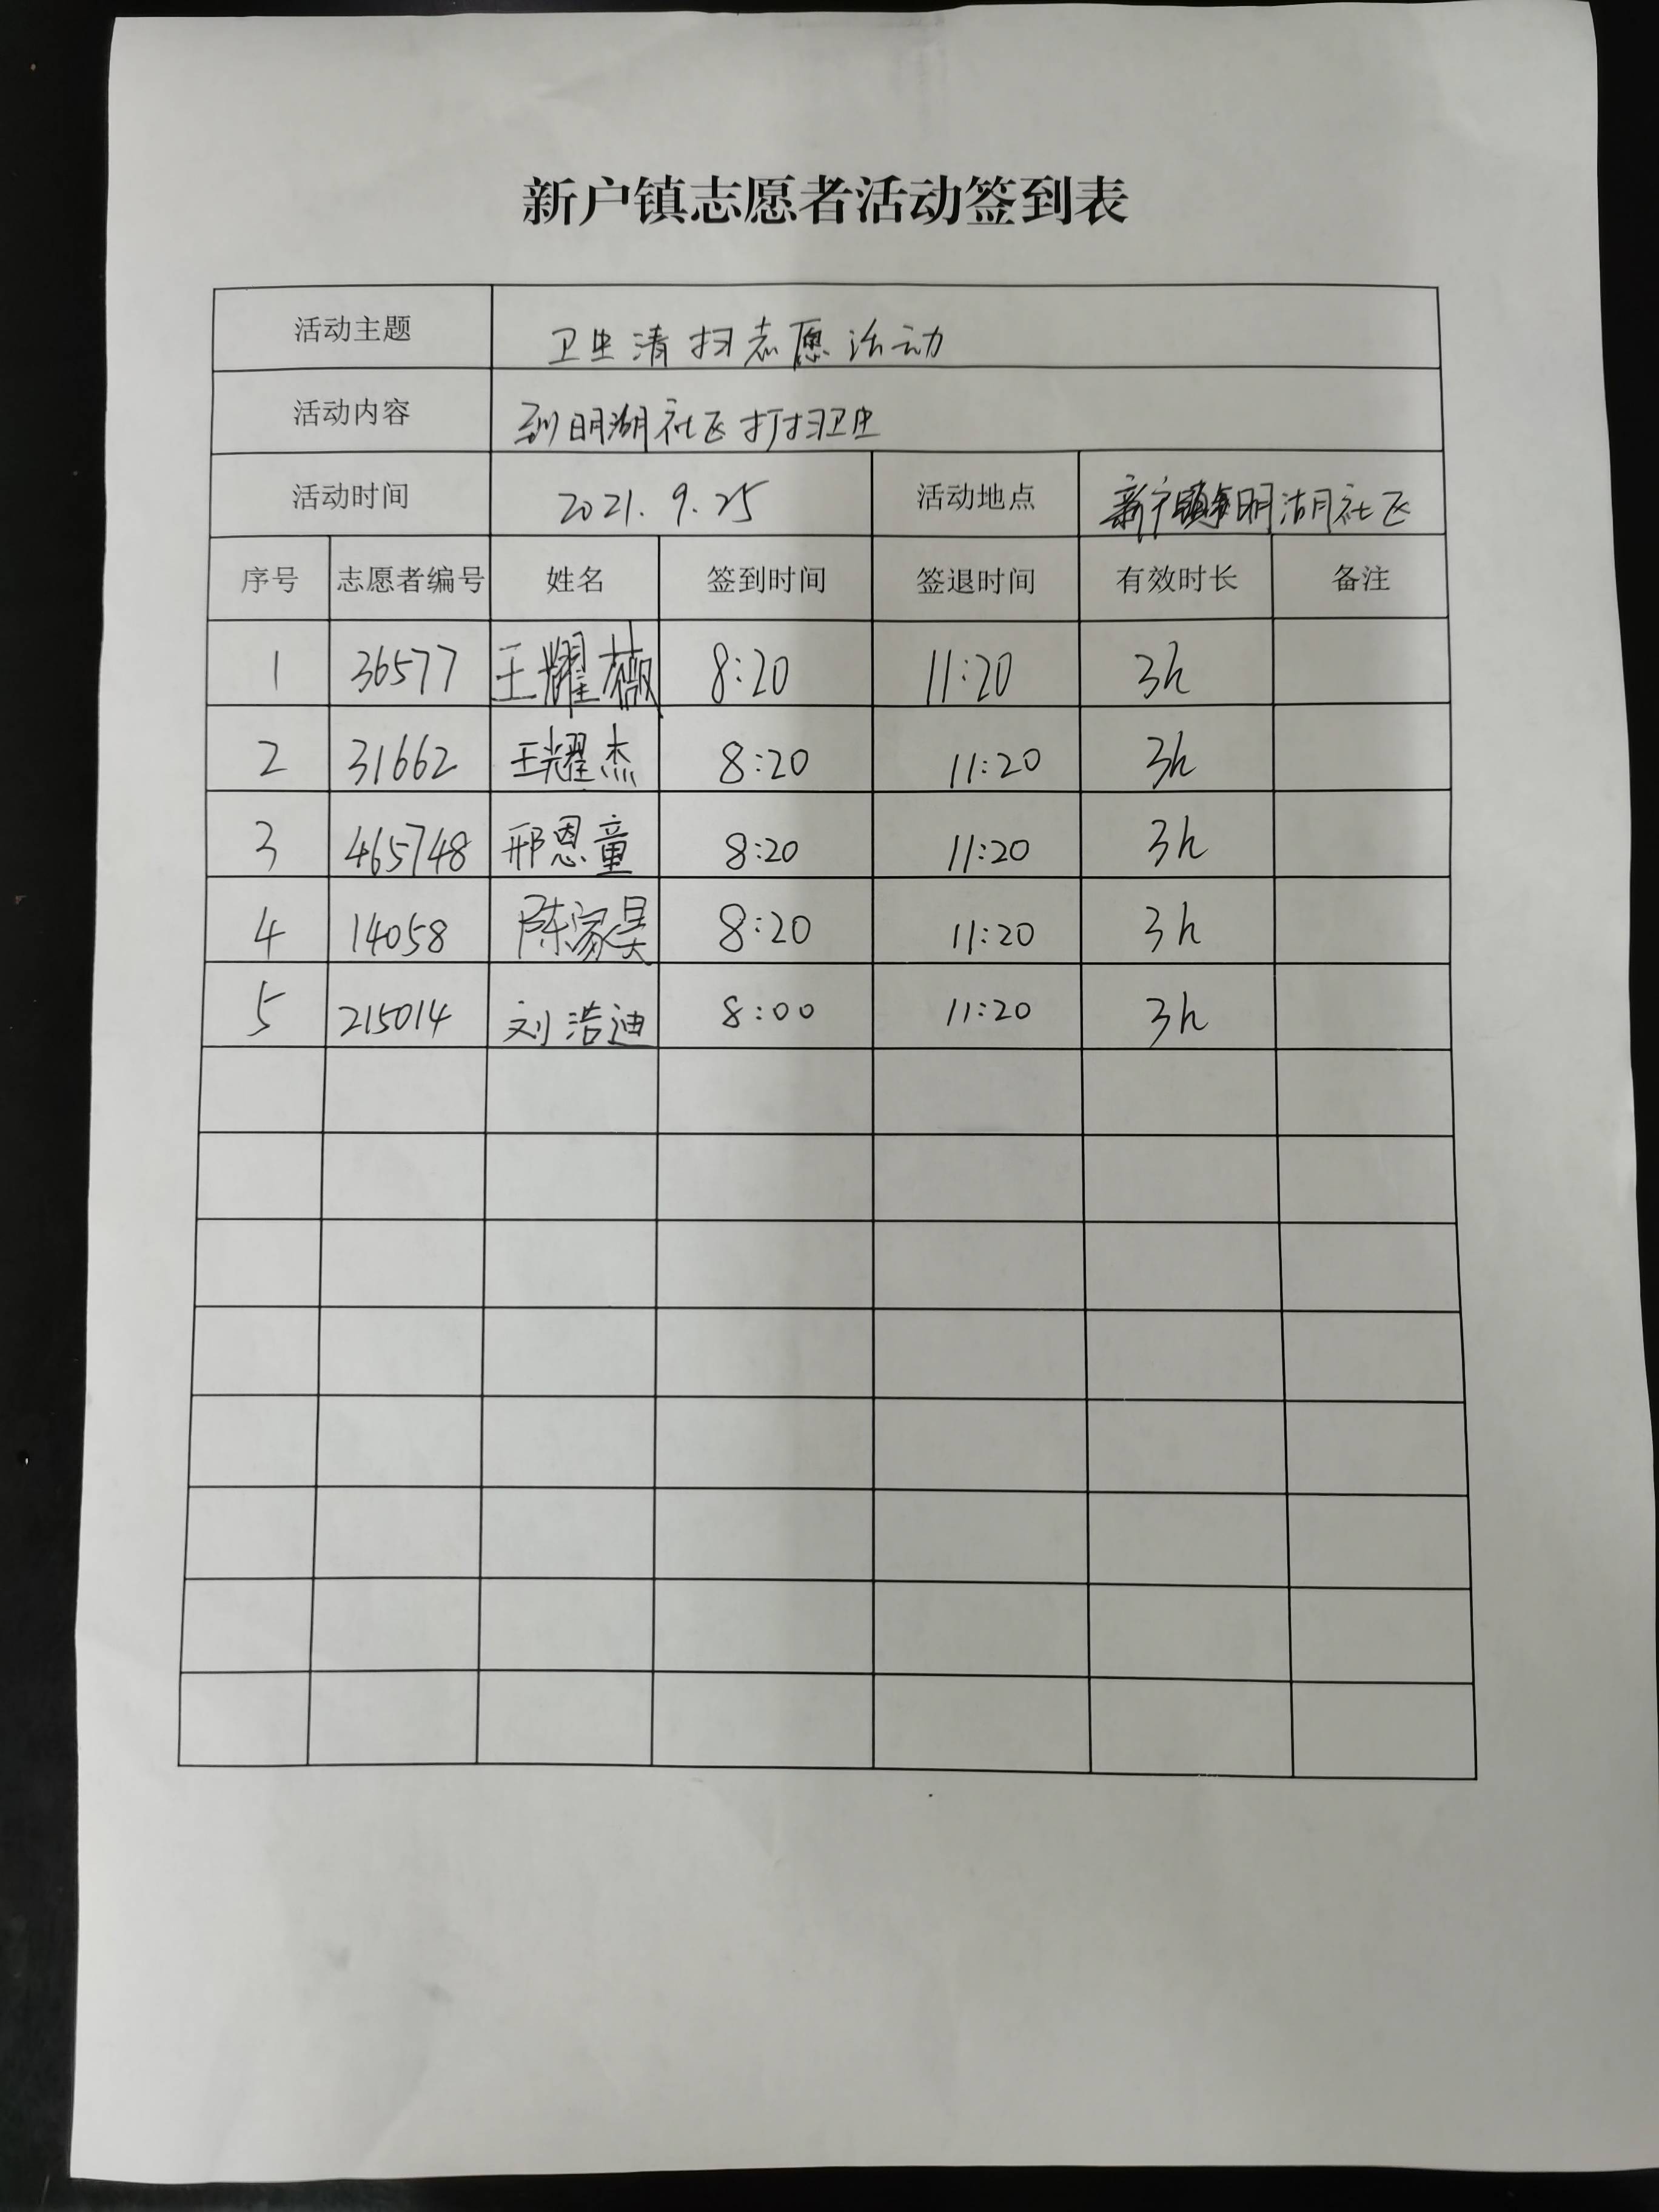 新户镇志愿者活动签到表
活动主题 卫生清扫志愿活动
活动内容 到明湖社区打扫卫生
活动时间 2021.9.25 活动地点 新户镇明湖社区
序号 志愿者编号 姓名 签到时间 签退时间 有效时长 备注
1 36577 王耀薇 8:20 11:20 3h
2 31662 王耀杰 8:20 11:20 3h
3 465748 邢恩童 8:20 11:20 3h
4 14058 陈家昊 8:20 11:20 3h
5 215014 刘浩迪 8:00 11:20 3h